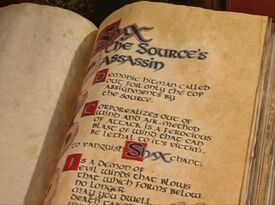 Shax
the Source's
Assassin
Demonic hitman called
out for only the top
assignments by
the Source.
Corporealizes out of
wind and air. Method
of attack is a ferocious
blast of wind that can
be lethal to it's victim..
to vanquish Shax chant:
Is a demon of
evil winds that blows
that which forms below
no longer
may you dwell
death takes